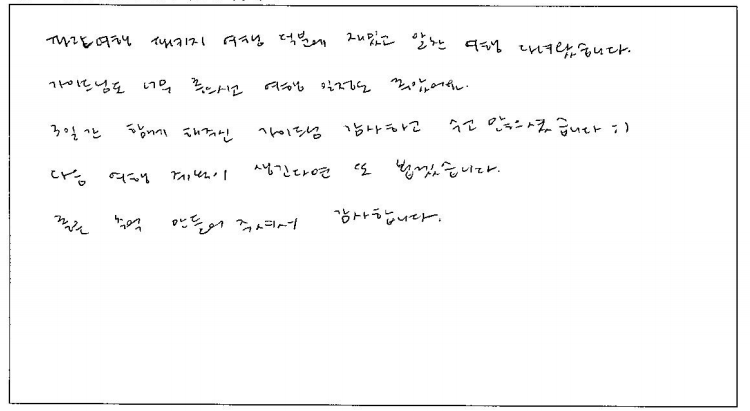 파랑여행 패키지 여행 덕분에 재밌고 알찬 여행 다녀왔습니다.
가이드님도 너무 좋으시고 여행 일정도 좋았어요.
3일간 함께 해주신 가이드님 감사하고 수고 많으셨습니다 :)
다음 여행 계획이 생긴다면 또 뵙겠습니다.
좋은 추억 만들어 주셔서 감사합니다.